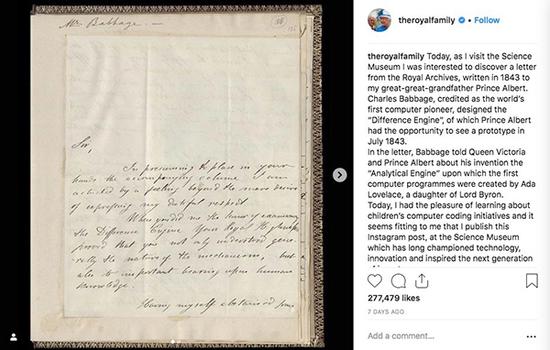 Mr. Babbage. —
Sir,
In presuming to place in your
hands the accompanying volume I am
actuated by a feeling beyond the mere desire
of expressing my dutiful respect.
When you did me the honor of examining
the Difference Engine Your Royal Highness
proved that you not only understood gene-
rally the nature of the mechanism, but
also its important bearing upon human
knowledge.
Having myself abstained from
theroyalfamily • Follow
theroyalfamily Today, as I visit the Science
Museum I was interested to discover a letter
from the Royal Archives, written in 1843 to
my great-great-grandfather Prince Albert.
Charles Babbage, credited as the world's
first computer pioneer, designed the
“Difference Engine”, of which Prince Albert
had the opportunity to see a prototype in
July 1843.
In the letter, Babbage told Queen Victoria
and Prince Albert about his invention the
“Analytical Engine” upon which the first
computer programmes were created by Ada
Lovelace, a daughter of Lord Byron.
Today, I had the pleasure of learning about
children's computer coding initiatives and it
seems fitting to me that I publish this
Instagram post, at the Science Museum
which has long championed technology,
innovation and inspired the next generation
277,479 likes
7 DAYS AGO
Add a comment...